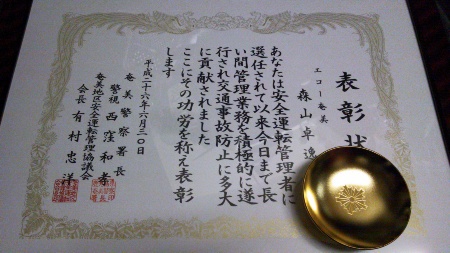 表彰状
エコー奄美
森山卓逸
あなたは安全運転管理者に
選任されて以来今日まで長
い間管理業務を積極的に遂
行され交通事故防止に多大
に貢献されました
ここにその功労を称え表彰
します
平成二十六年六月三〇日
奄美警察署長
警視 西窪和孝
奄美地区安全運転管理協議会
会長 有村忠洋